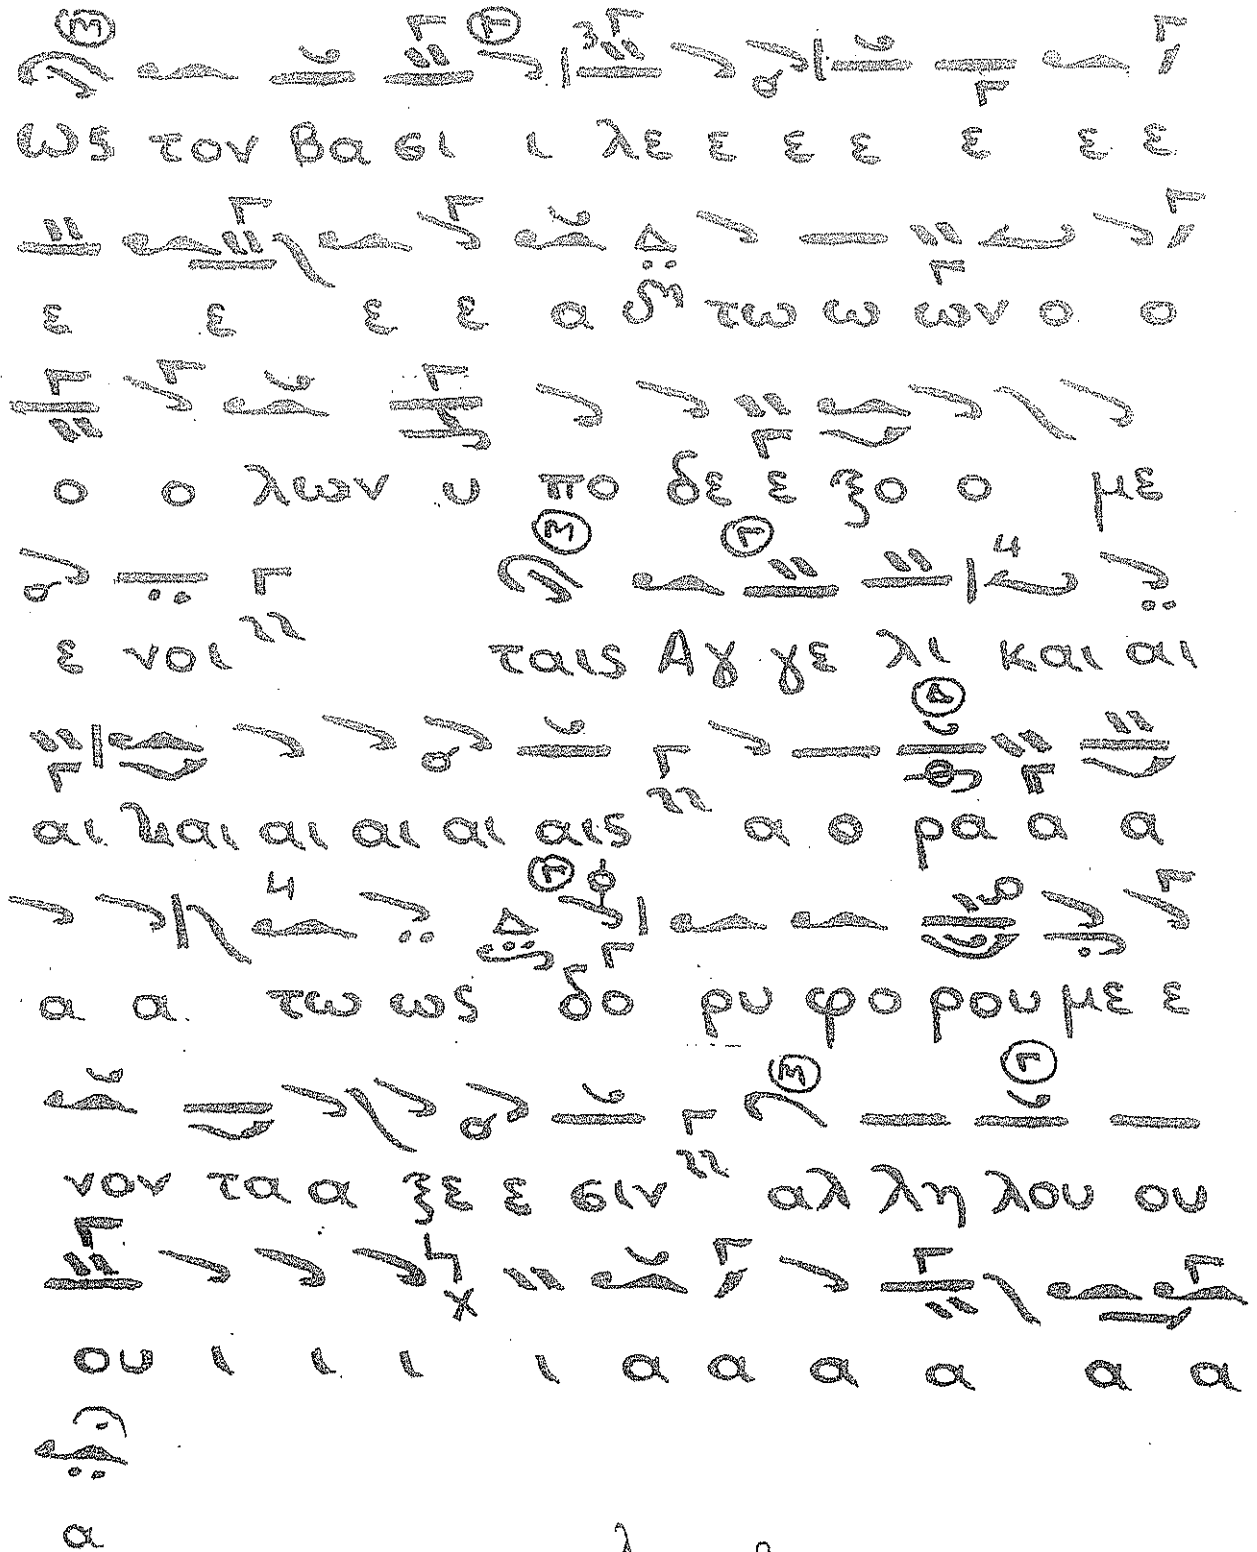 ως τον βα σι ι λε ε ε ε ε ε ε
ε ε ε ε α τω ω ων ο ο
ο ο λων υ πο δε ε ξο ο με
ε νοι ταις Αγ γε λι και αι
αι και αι αι αι αις α ο ρα α α
α α τω ως δο ρυ φο ρου με ε
νον τα α ξε ε σιν αλ λη λου ου
ου ι ι ι ι α α α α α α
α